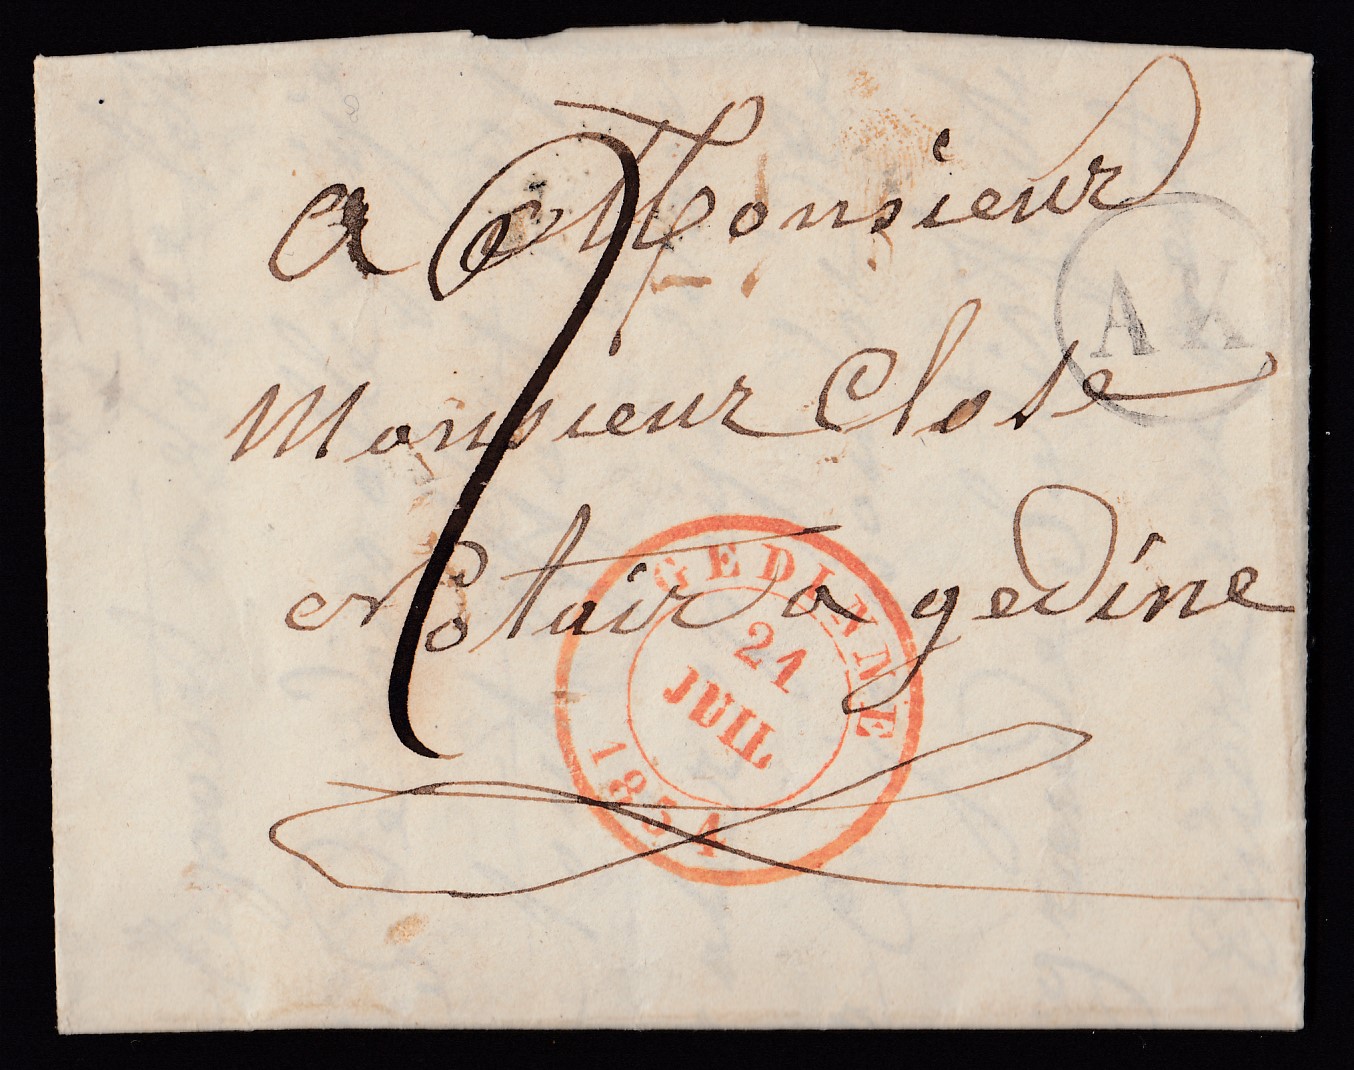 a Monsieur
AX
Monsieur Close
Notair a gedine
GEDINNE
21
JUIL
1851